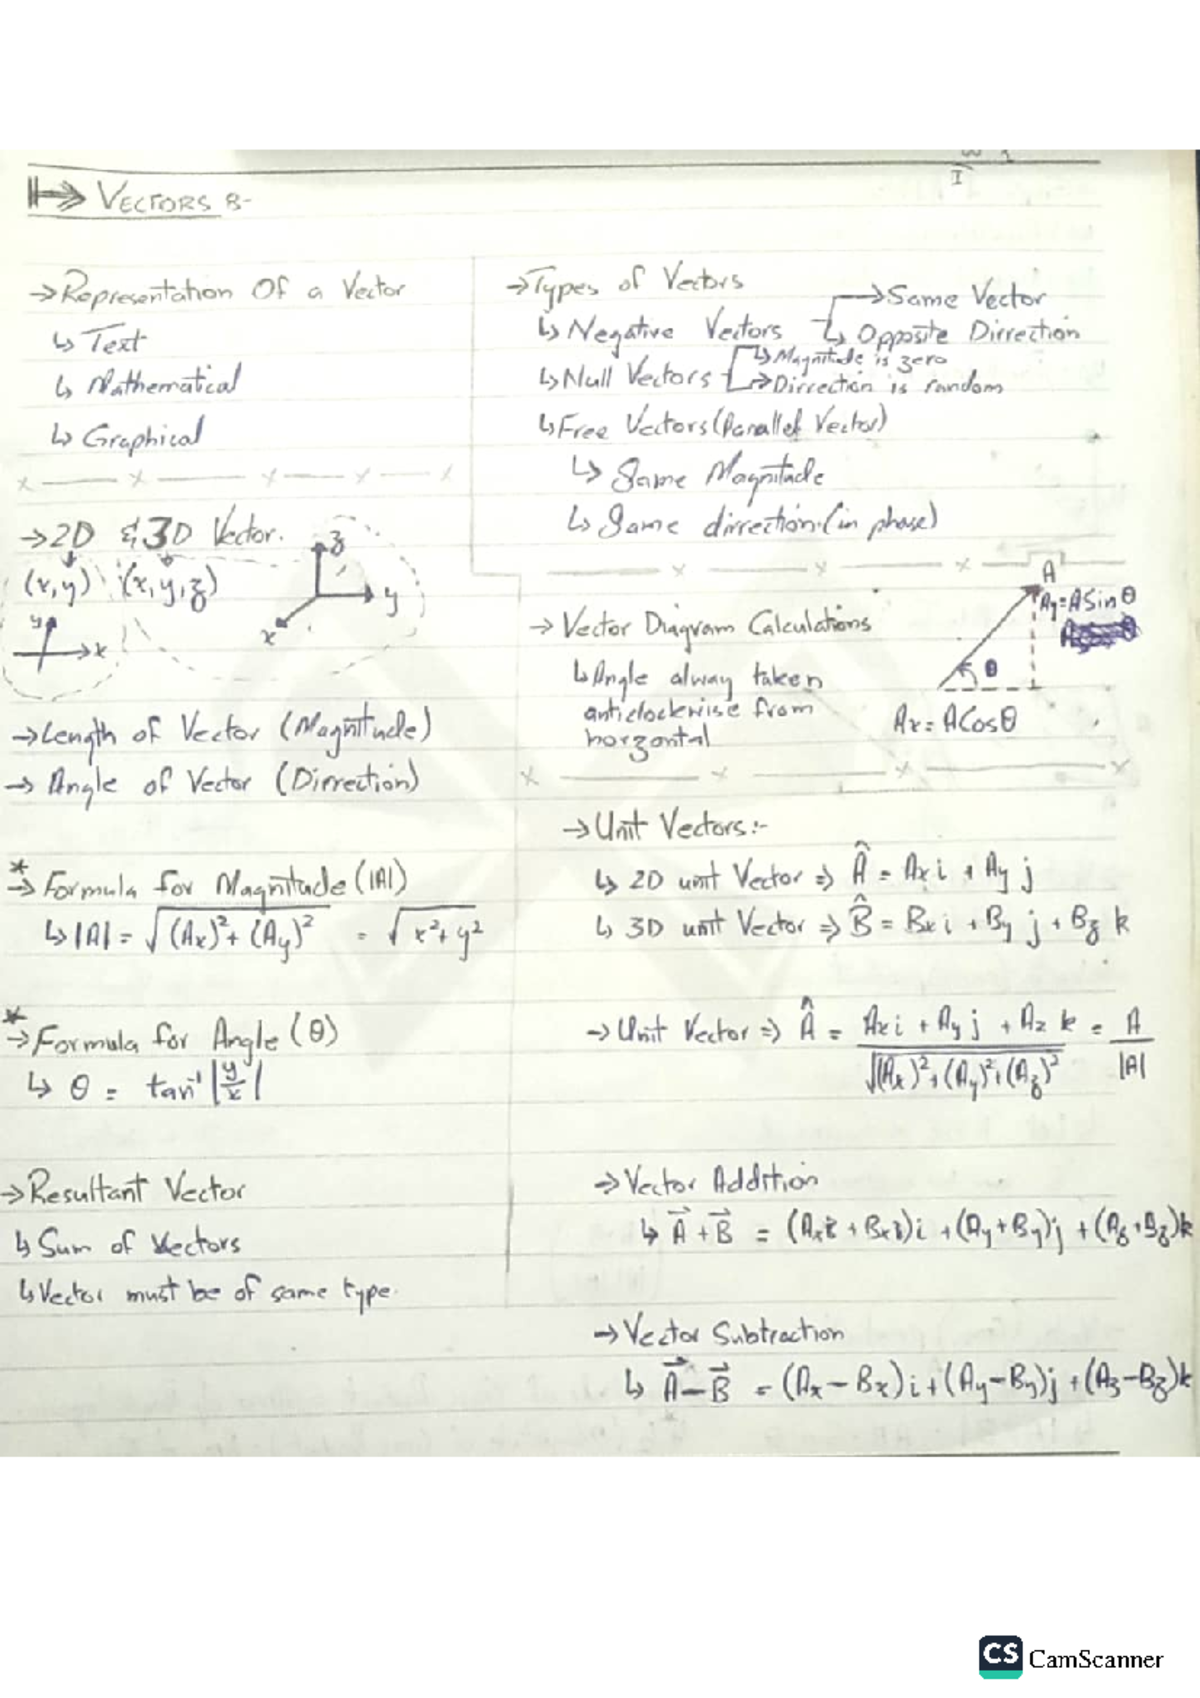 VECTORS :-
→ Representation Of a Vector
↳ Text
↳ Mathematical
↳ Graphical
→ 2D & 3D Vector.
(x,y) (x,y,z)
z
y
x
y
x
→ Length of Vector (Magnitude)
→ Angle of Vector (Dirrection)
* → Formula for Magnitude (|A|)
↳ |A| = √(Ax)²+(Ay)² = √x²+y²
* → Formula for Angle (θ)
↳ θ = tan⁻¹ |y/x|
→ Resultant Vector
↳ Sum of Vectors
↳ Vector must be of same type.
→ Types of Vectors
↳ Negative Vectors → Same Vector
↳ Opposite Dirrection
↳ Null Vectors ↳ Magnitude is zero
→ Dirrection is random
↳ Free Vectors (Parallel Vector)
↳ Same Magnitude
↳ Same dirrection. (in phase)
→ Vector Diagram Calculations
↳ Angle alway taken
anticlockwise from
horzontal
A
Ay = A Sin θ
θ
Ax = A Cos θ
→ Unit Vectors:-
↳ 2D unit Vector ⇒ Â = Ax i + Ay j
↳ 3D unit Vector ⇒ B̂ = Bx i + By j + Bz k
→ Unit Vector ⇒ Â = Ax i + Ay j + Az k / √(Ax)²+(Ay)²+(Az)² = A / |A|
→ Vector Addition
↳ A⃗ + B⃗ = (Ax + Bx) i + (Ay + By) j + (Az + Bz) k
→ Vector Subtraction
↳ A⃗ − B⃗ = (Ax − Bx) i + (Ay − By) j + (Az − Bz) k
CS CamScanner